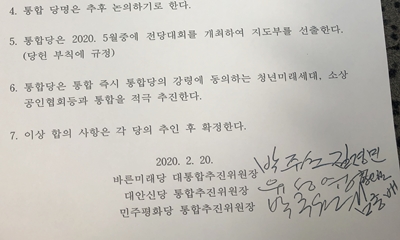 4. 통합 당명은 추후 논의하기로 한다.
5. 통합당은 2020. 5월중에 전당대회를 개최하여 지도부를 선출한다.
(당헌 부칙에 규정)
6. 통합당은 통합 즉시 통합당의 강령에 동의하는 청년미래세대, 소상
공인협회등과 통합을 적극 추진한다.
7. 이상 합의 사항은 각 당의 추인 후 확정한다.
2020. 2. 20.
바른미래당 대통합추진위원장 박주선
대안신당 통합추진위원장 유성엽
민주평화당 통합추진위원장